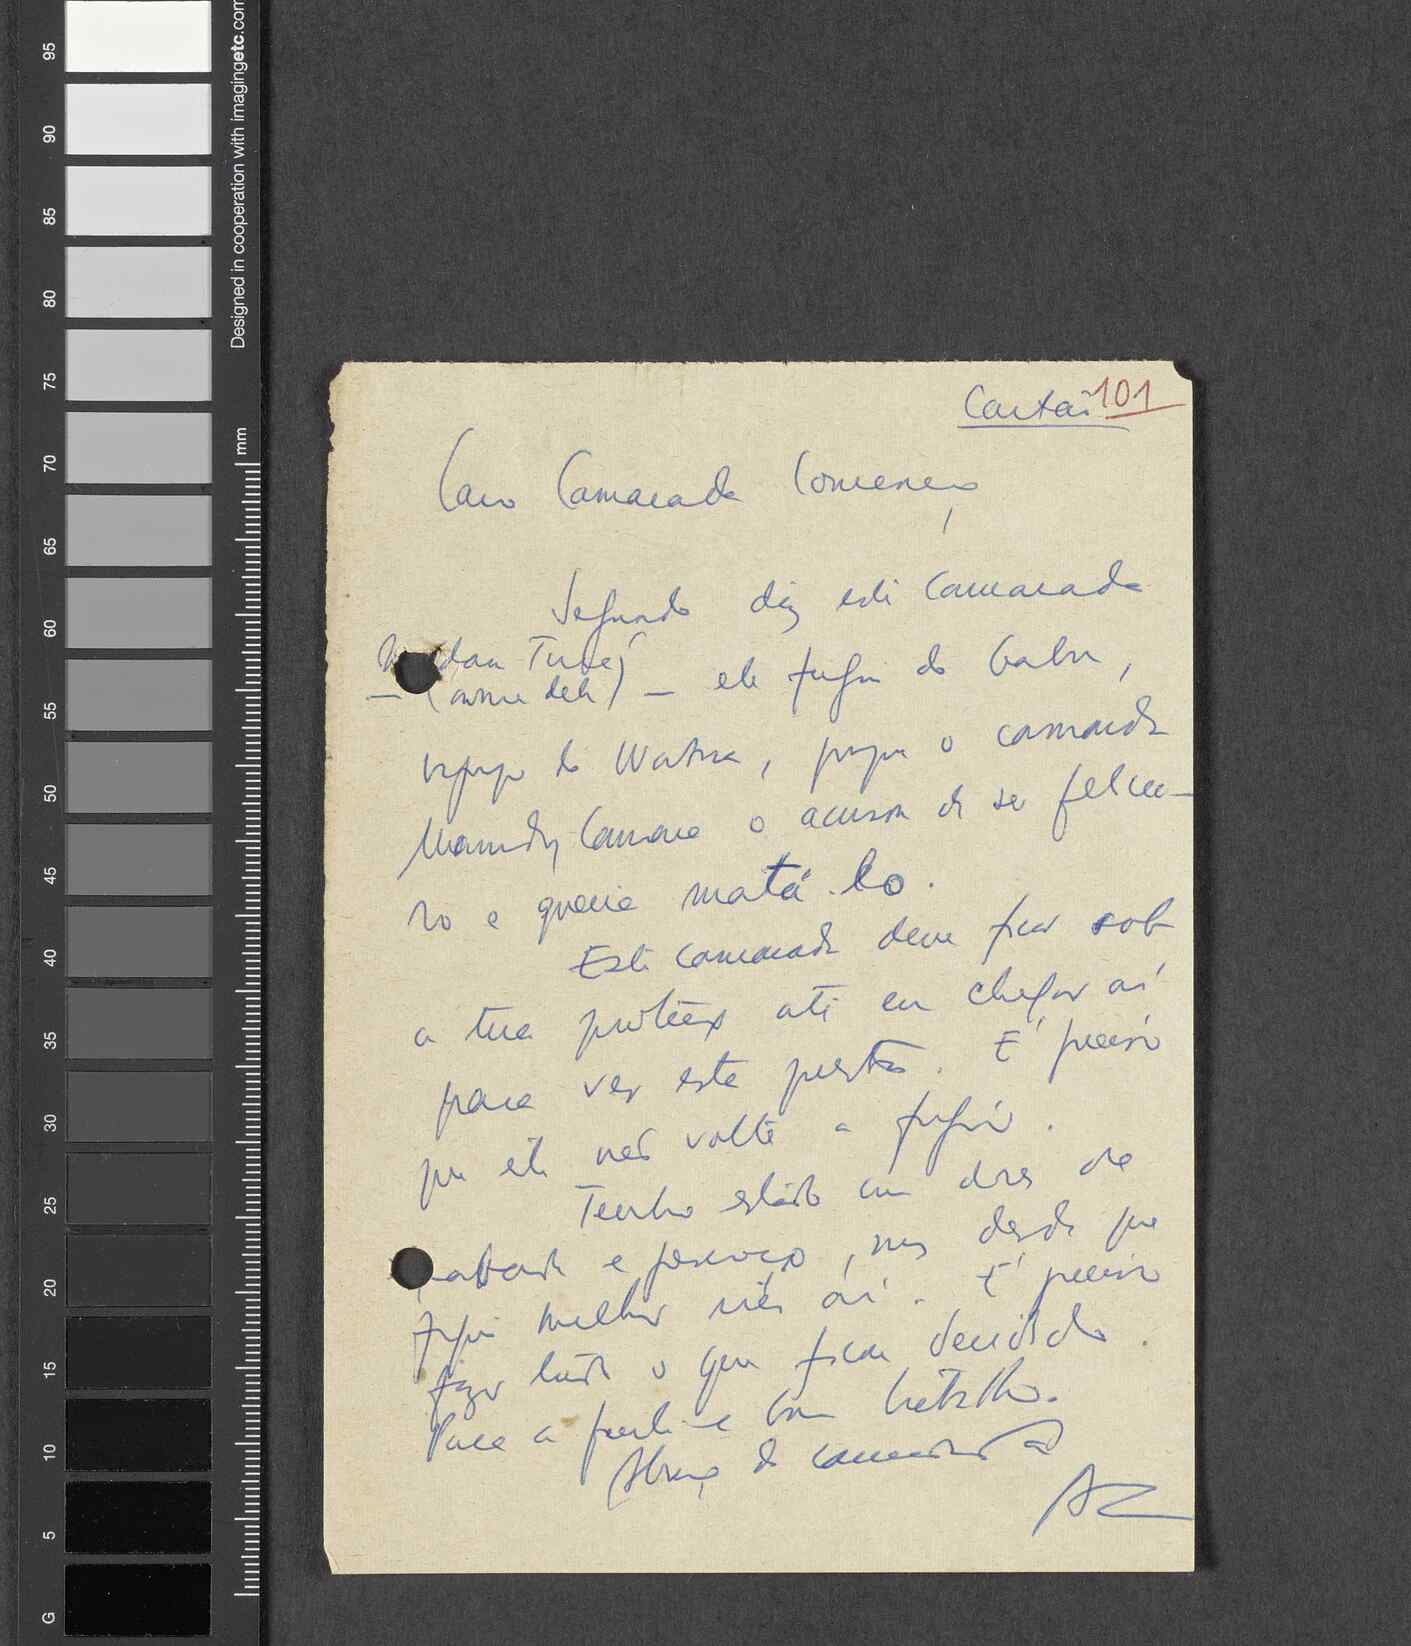 Designed in cooperation with imagingetc.com
mm
95
90
85
80
75
70
65
60
55
50
45
40
35
30
25
20
15
10
5
G
Cartas 101
Caro Camarada Lourenço,
Segundo diz este camarada
dan Turé
— (nome dele) — ele fugiu do Gabu,
do porque o camarada
Mamady Camara o acusou de ser feiticei-
ro e queria matá-lo.
Este camarada deve ficar sob
a tua protecção até eu chegar aí
para ver esta questão. É preciso
que ele não volte a fugir.
Tenho estado com dores de
e pescoço, mas desde que
fique melhor irei aí. É preciso
fazer tudo o que ficou decidido.
Para a frente e bom trabalho.
Abraço do camarada